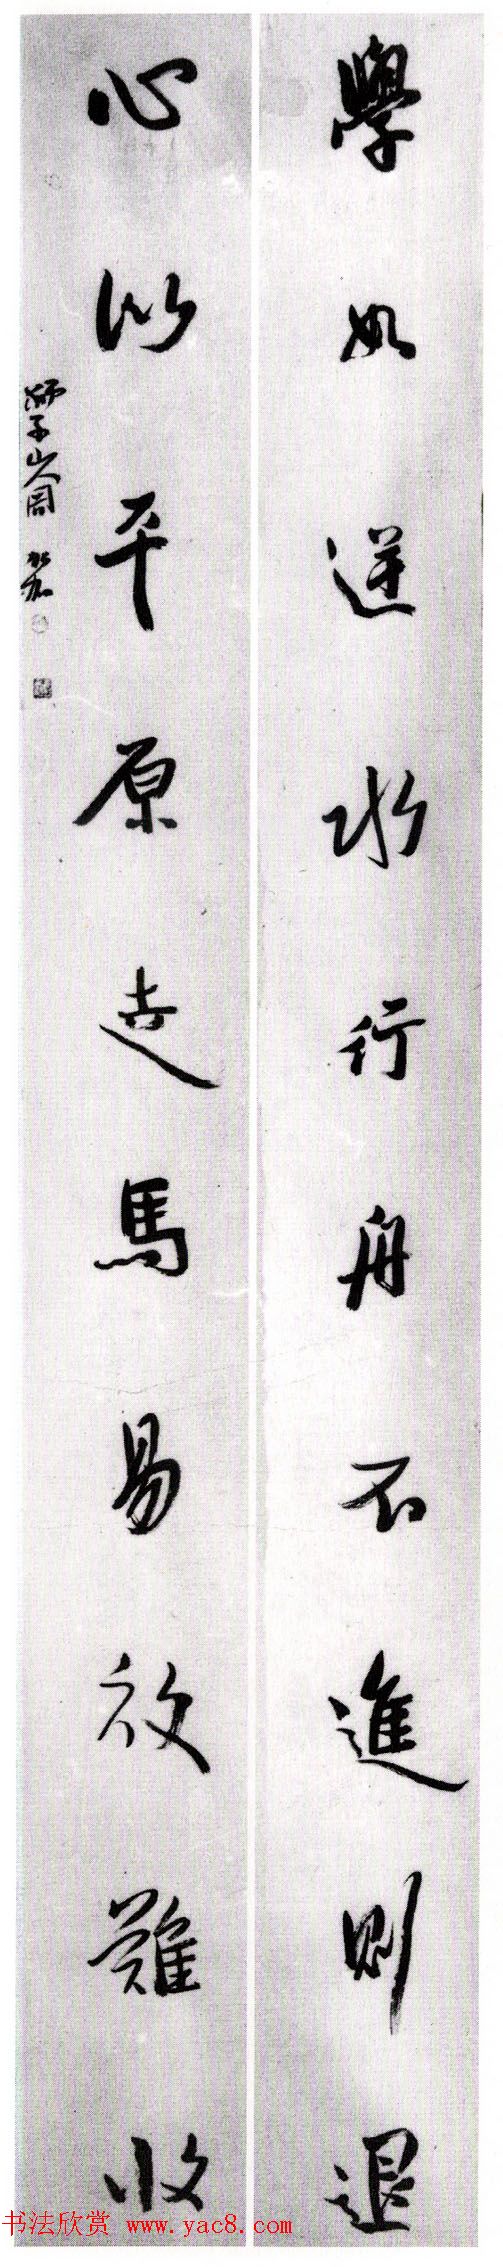 學如逆水行舟不進則退
心似平原走馬易放難收
書法欣赏 www.yac8.com